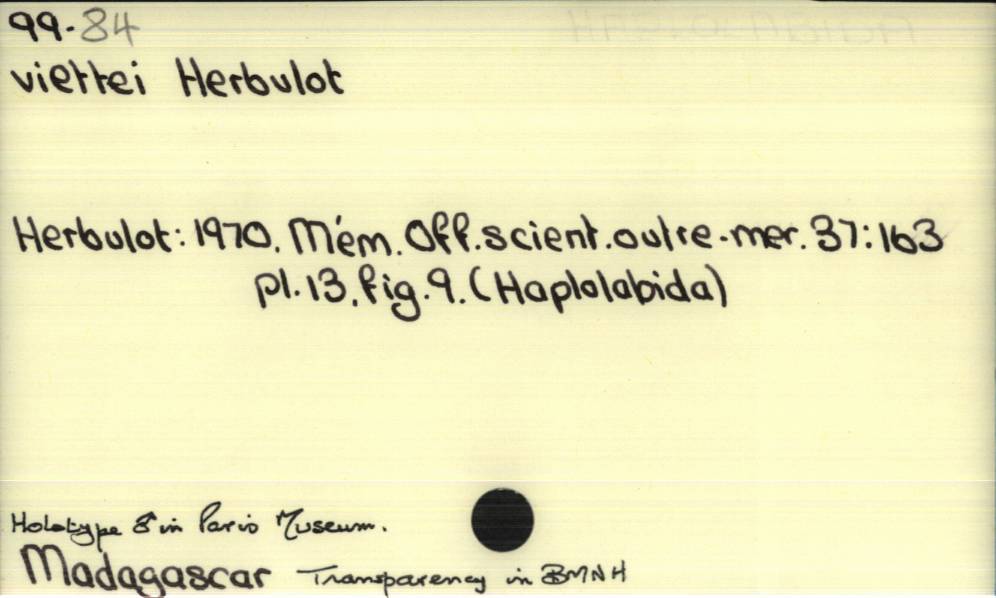 99.84
viettei Herbulot
Herbulot: 1970. Mém. Off. scient. outre-mer. 37: 163
pl. 13, fig. 9. (Haplolabida)
Holotype ♂ in Paris Museum.
Madagascar Transparency in BMNH